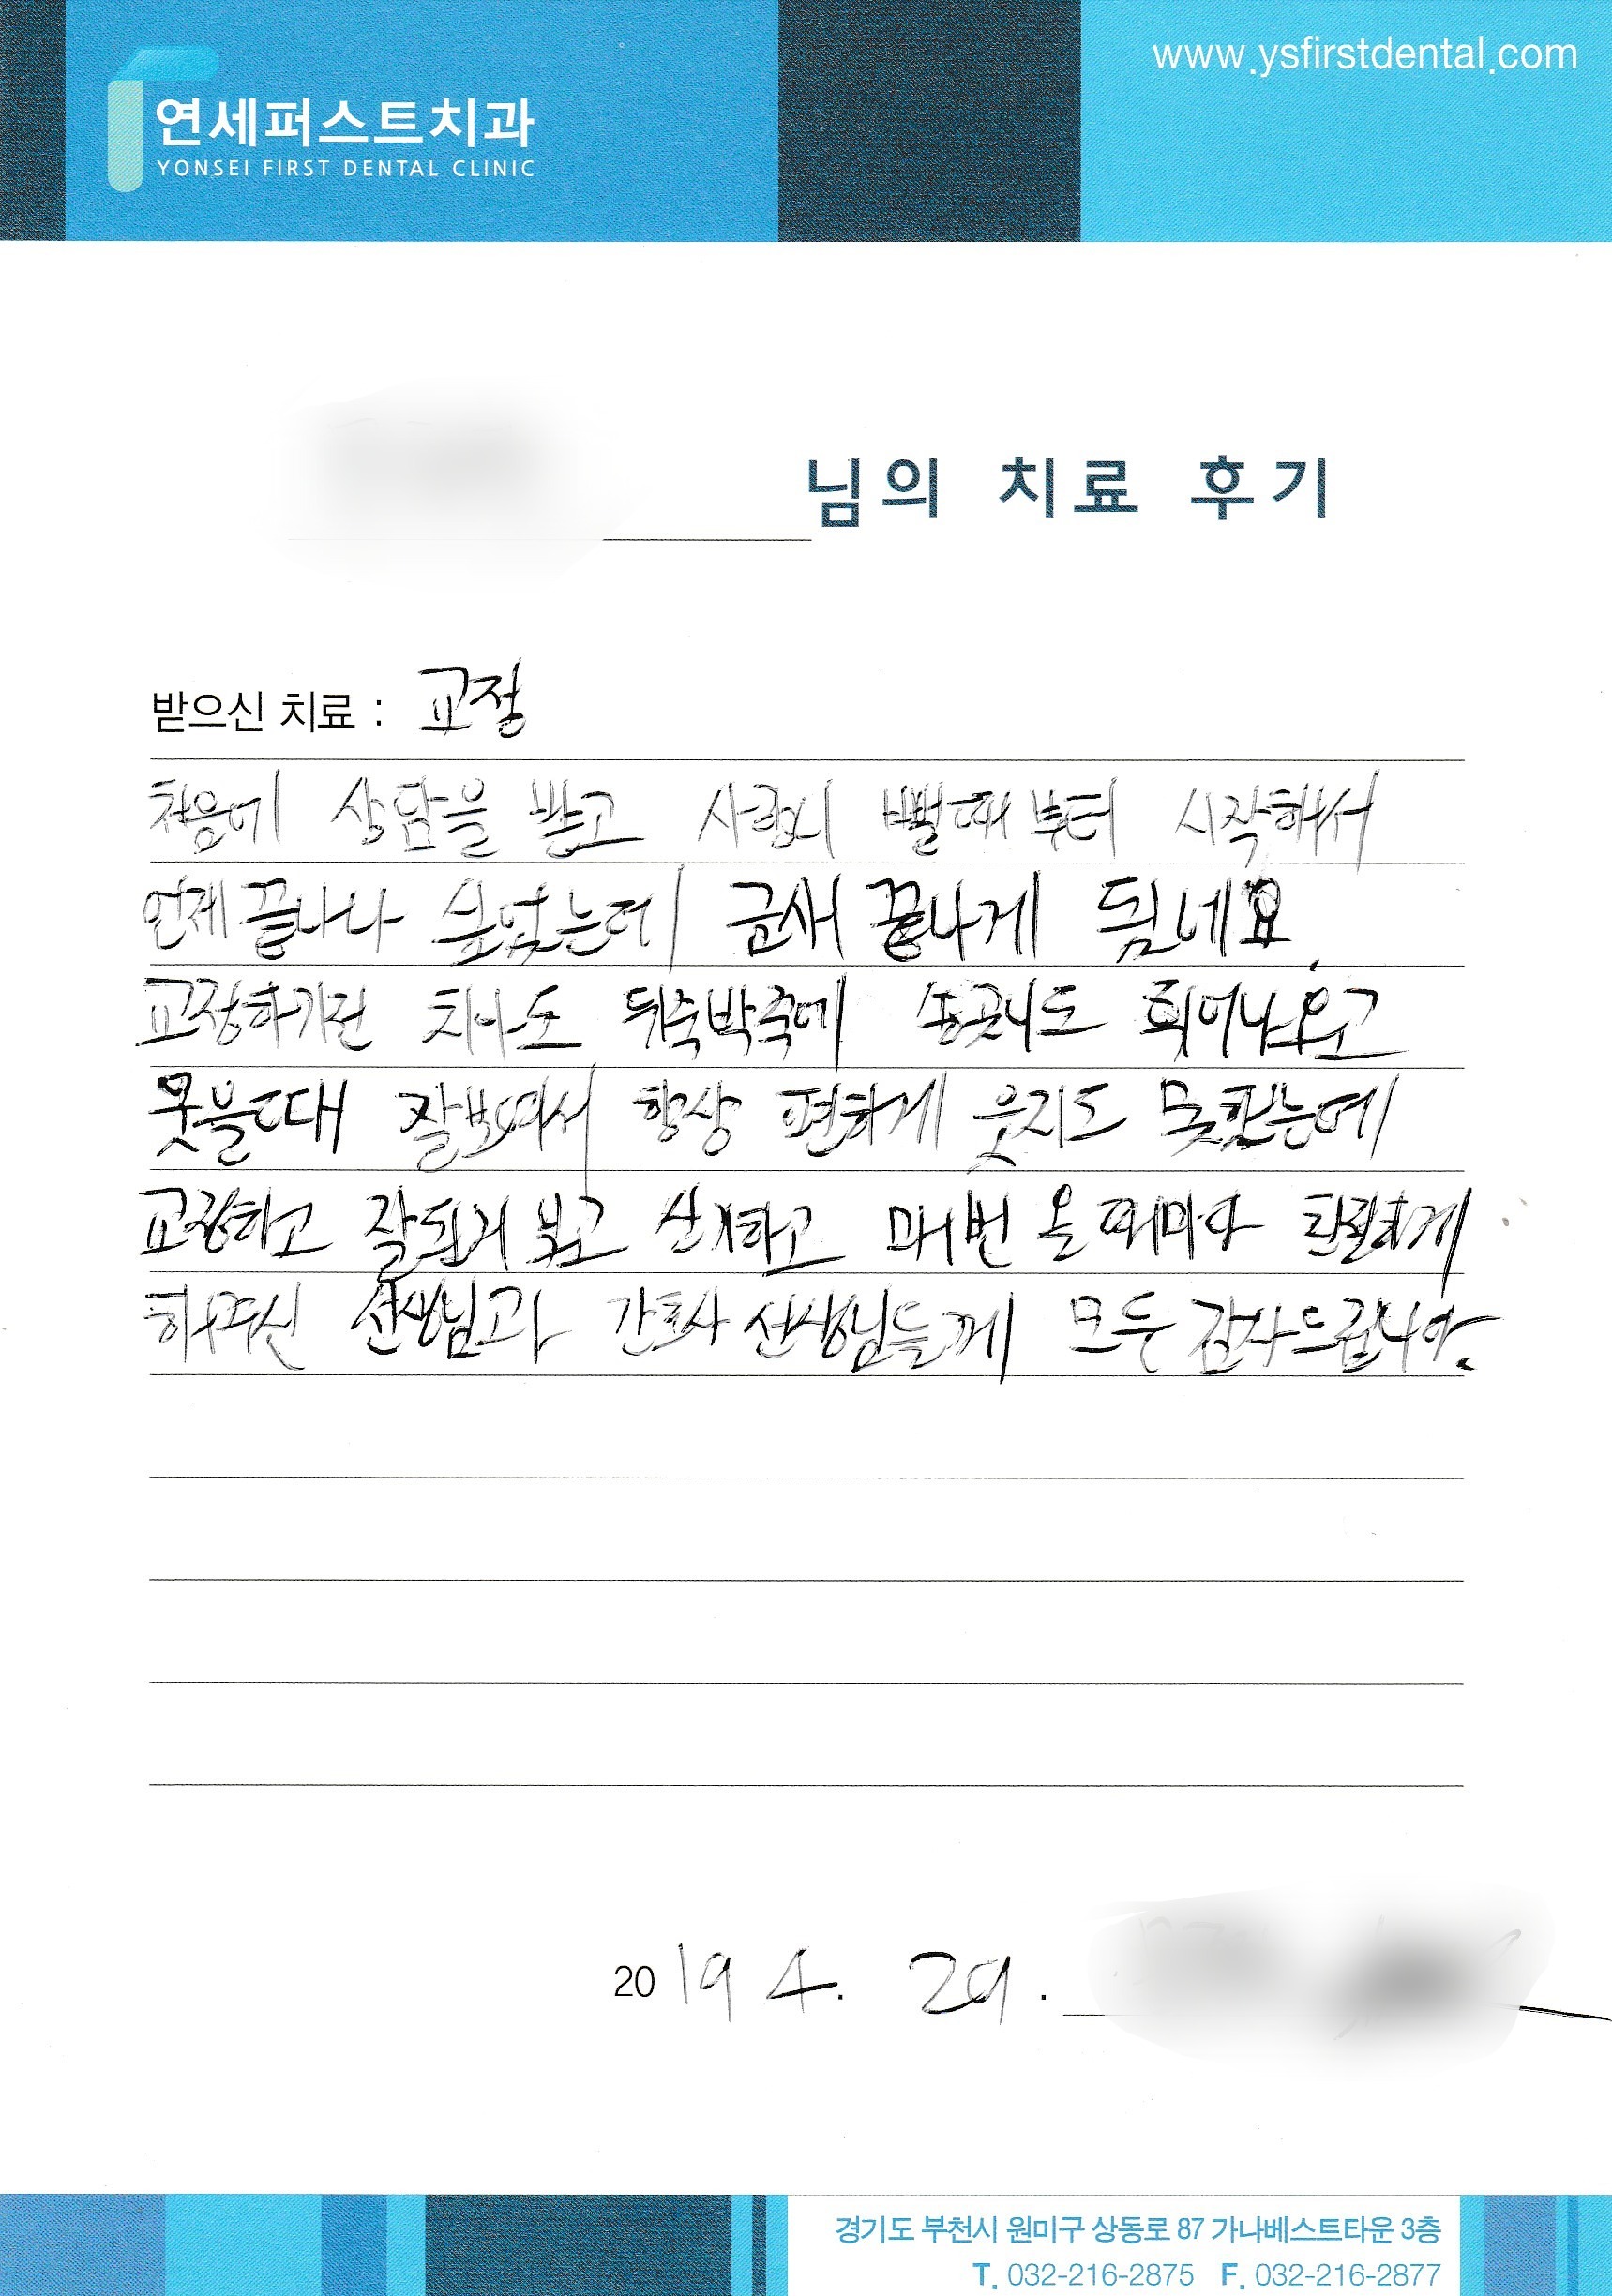 www.ysfirstdental.com
연세퍼스트치과
YONSEI FIRST DENTAL CLINIC
님의 치료 후기
받으신 치료 : 교정
처음에 상담을 받고 사랑니 뺄때부터 시작해서
언제 끝나나 싶었는데 금새 끝나게 됬네요.
교정하기전 치아도 뒤죽박죽에 송곳니도 튀어나오고
웃을때 잘보여서 항상 편하게 웃지도 못했는데
교정하고 잘된거 보고 신기하고 매번 올때마다 친절하게
해주신 선생님과 간호사 선생님들께 모두 감사드립니다.
2019 4. 29.
경기도 부천시 원미구 상동로 87 가나베스트타운 3층
T. 032-216-2875 F. 032-216-2877